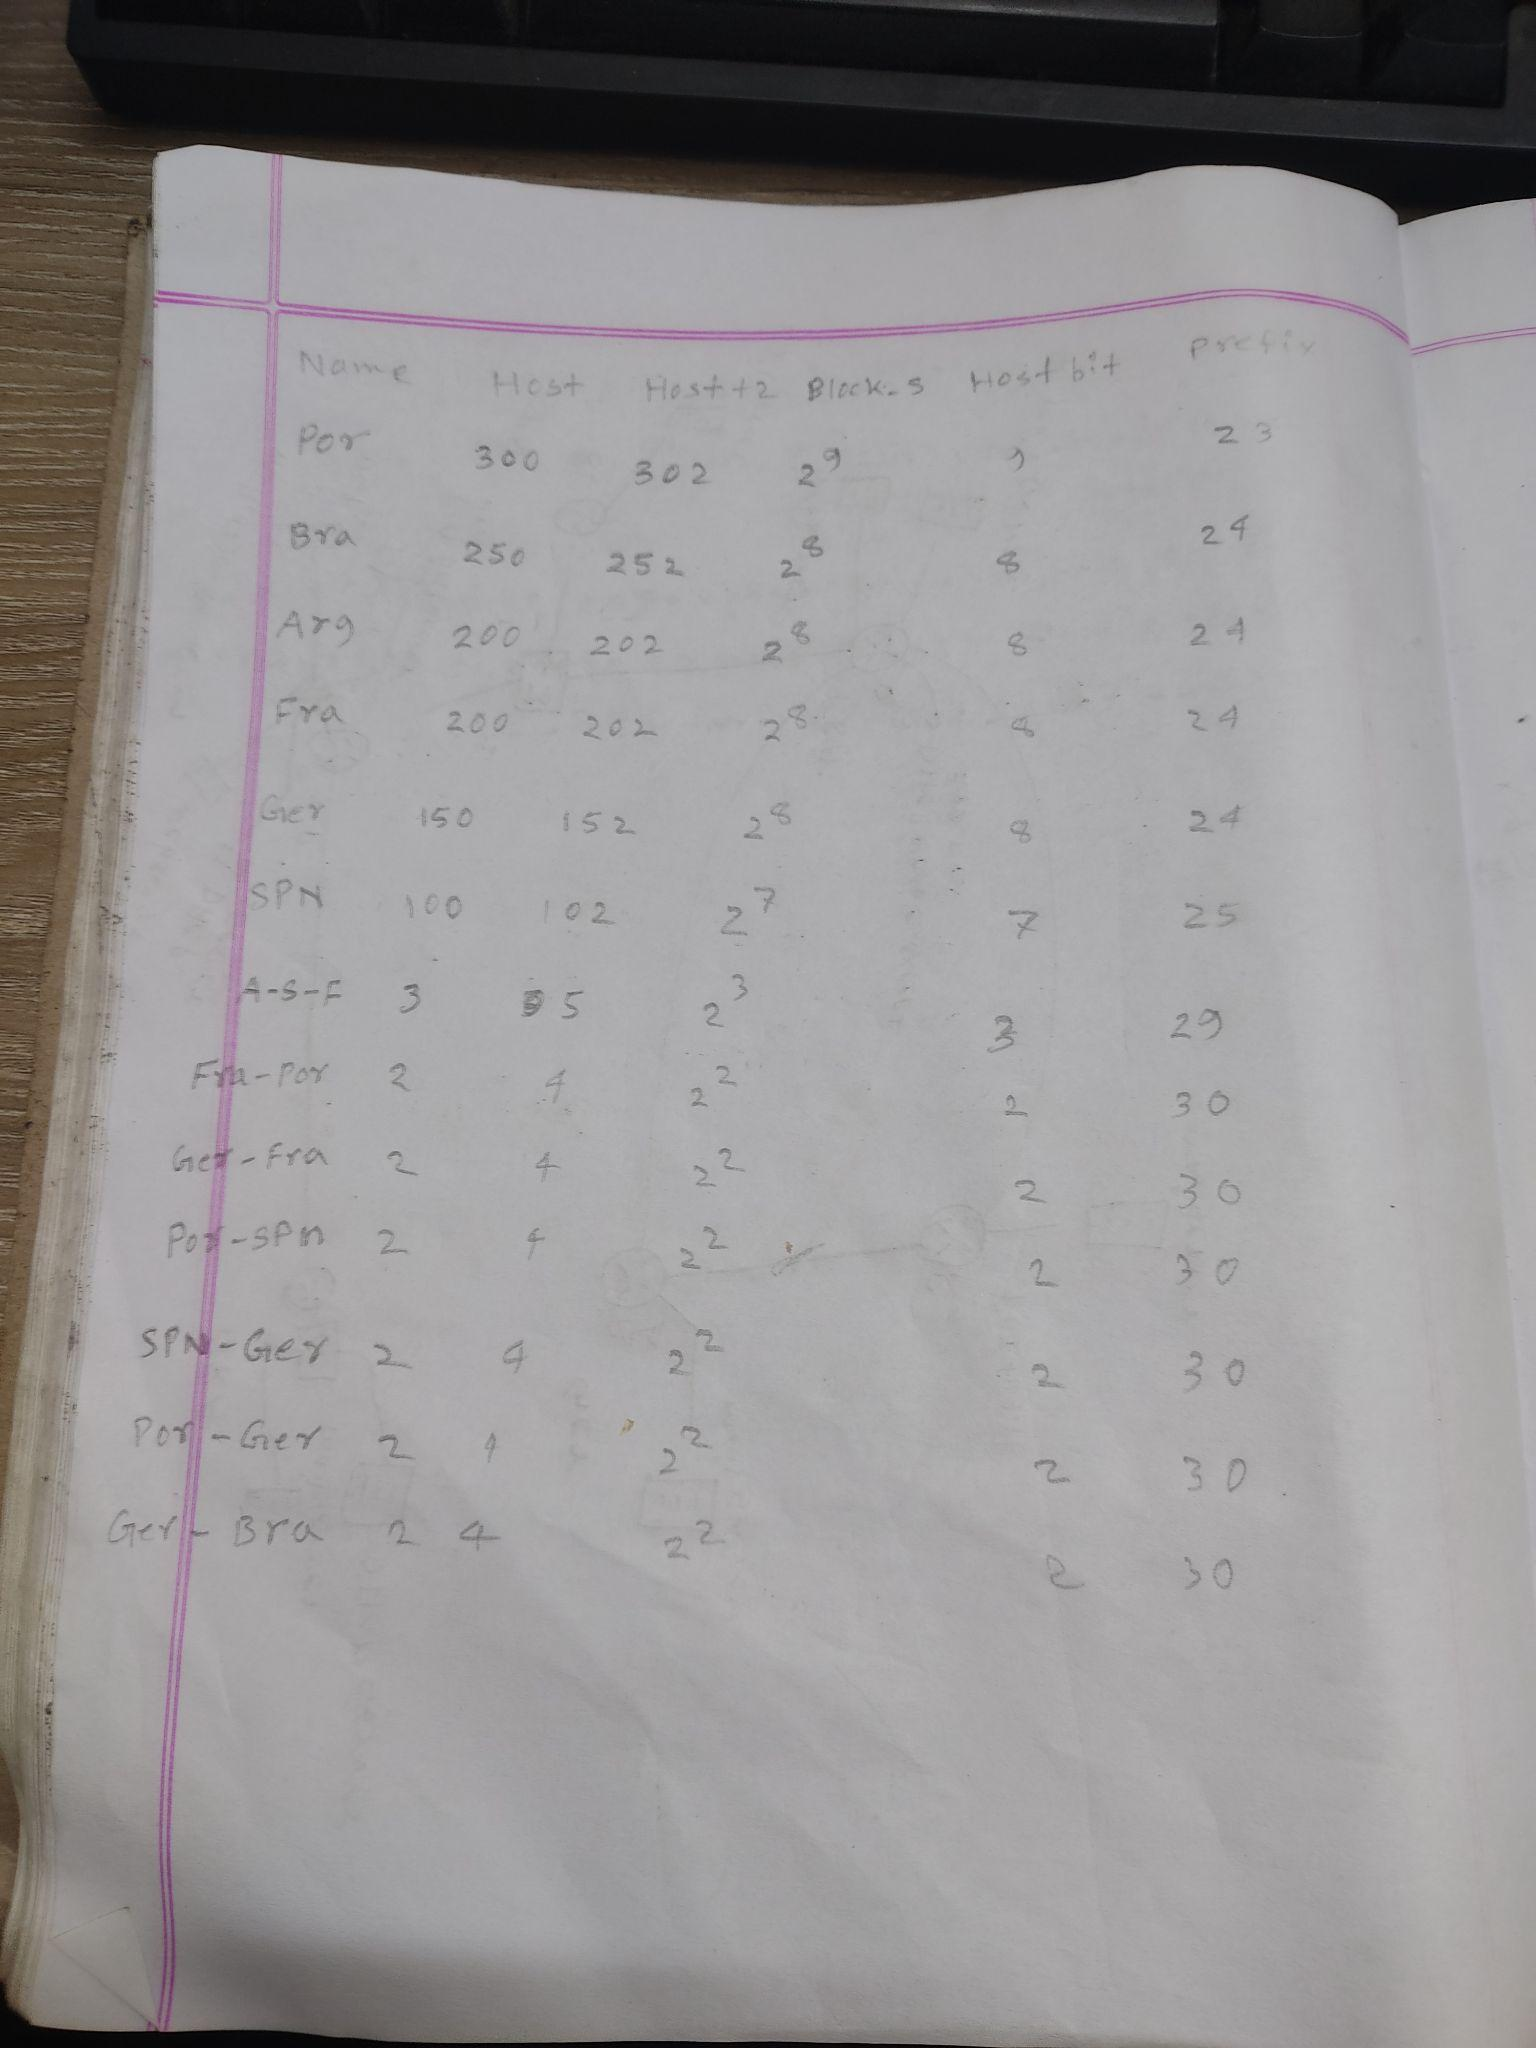 Name Host Host+2 Block-S Host bit prefix
Por 300 302 2⁹ 9 23
Bra 250 252 2⁸ 8 24
Arg 200 202 2⁸ 8 24
Fra 200 202 2⁸ 8 24
Ger 150 152 2⁸ 8 24
SPN 100 102 2⁷ 7 25
A-S-F 3 5 2³ 3 29
Fra-Por 2 4 2² 2 30
Ger-Fra 2 4 2² 2 30
Por-SPN 2 4 2² 2 30
SPN-Ger 2 4 2² 2 30
Por-Ger 2 4 2² 2 30
Ger-Bra 2 4 2² 2 30